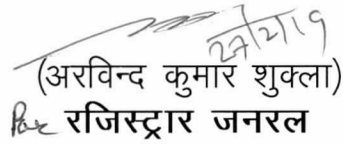 27/2/19
(अरविन्द कुमार शुक्ला)
रजिस्ट्रार जनरल